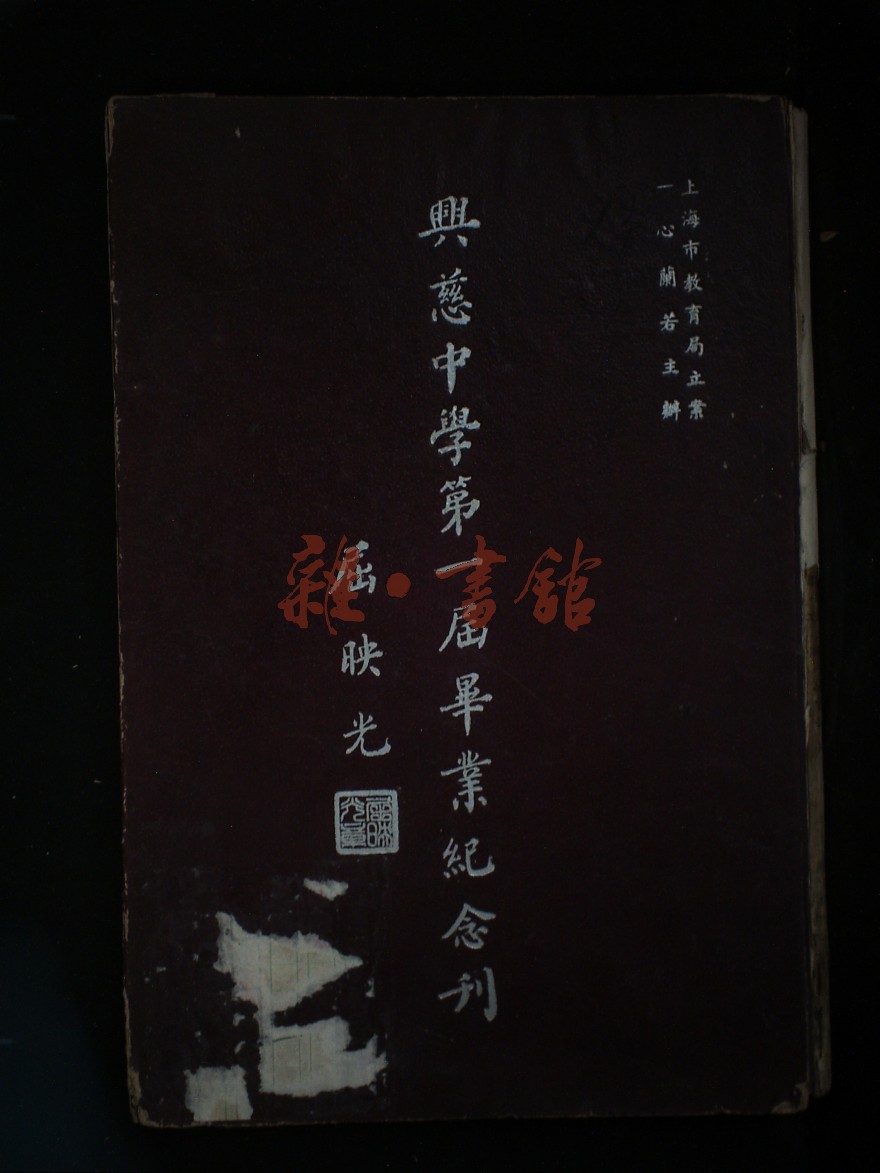 上海市教育局立案
一心蘭若主辦
興慈中學第一屆畢業紀念刊
屈映光
屈映光章
雜·書舘